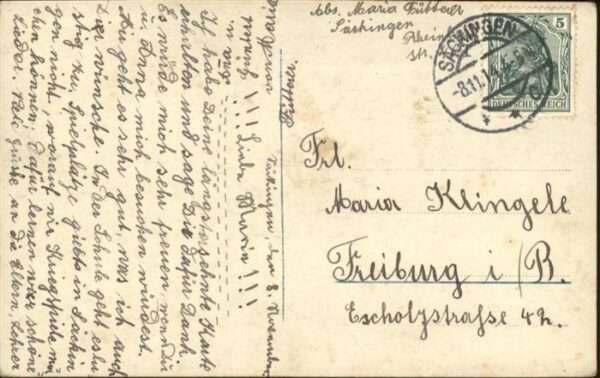 Abs. Maria
Säckingen
Rhein
str.
SÄCKINGEN
8.11.1
5
DEUTSCHES REICH
Frl.
Maria Klingele
Freiburg i/B.
Escholzstraße 42.
Säckingen, den 8. November
Liebe Maria!!!
Ich habe Deine längst ersehnte Karte
erhalten und sage Dir dafür Dank.
Es würde mich sehr freuen wenn Du
u. Anna mich besuchen würdest.
Mir geht es sehr gut, was ich auch
Dir wünsche. In der Schule geht es
zu. Spielplätze gibts in Säckin
gen nicht, worauf wir Kriegspiele ma
chen können; dafür lernen wir schöne
Lieder. Viele Grüße an die Eltern, Lehrer